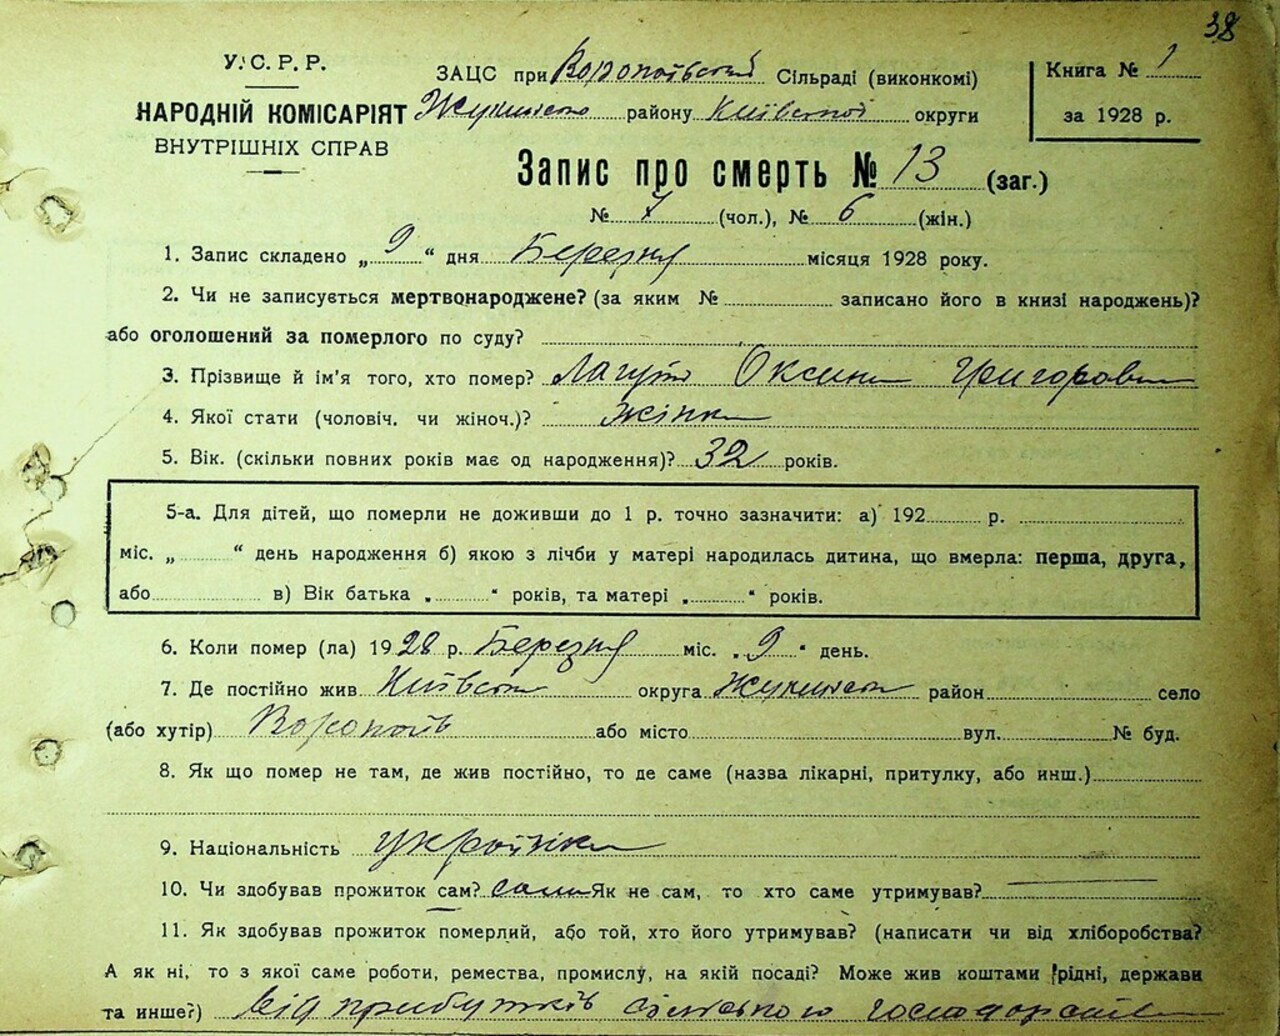 38
У.С.Р.Р.
НАРОДНІЙ КОМІСАРІЯТ
ВНУТРІШНІХ СПРАВ
ЗАЦС при Воропоївській Сільраді (виконкомі)
району Київської округи
Книга № 1
за 1928 р.
Запис про смерть № 13 (заг.)
№ 7 (чол.), № 6 (жін.)
1. Запис складено „ 9 “ дня Березня місяця 1928 року.
2. Чи не записується мертвонароджене? (за яким № записано його в книзі народжень)?
або оголошений за померлого по суду?
3. Прізвище й ім'я того, хто помер? Лагута Оксана Григоровна
4. Якої стати (чоловіч. чи жіноч.)? жінка
5. Вік. (скільки повних років має од народження)? 32 років.
5-а. Для дітей, що померли не доживши до 1 р. точно зазначити: а) 192 р.
міс. „ “ день народження б) якою з лічби у матері народилась дитина, що вмерла: перша, друга,
або в) Вік батька „ “ років, та матері „ “ років.
6. Коли помер (ла) 1928 р. Березня міс. „ 9 “ день.
7. Де постійно жив Київська округа район село
(або хутір) Воропоїв або місто вул. № буд.
8. Як що помер не там, де жив постійно, то де саме (назва лікарні, притулку, або инш.)
9. Національність українка
10. Чи здобував прожиток сам? сама Як не сам, то хто саме утримував?
11. Як здобував прожиток померлий, або той, хто його утримував? (написати чи від хліборобства?
А як ні, то з якої саме роботи, ремества, промислу, на якій посаді? Може жив коштами рідні, держави
та инше?) від прибутків сільського господарства